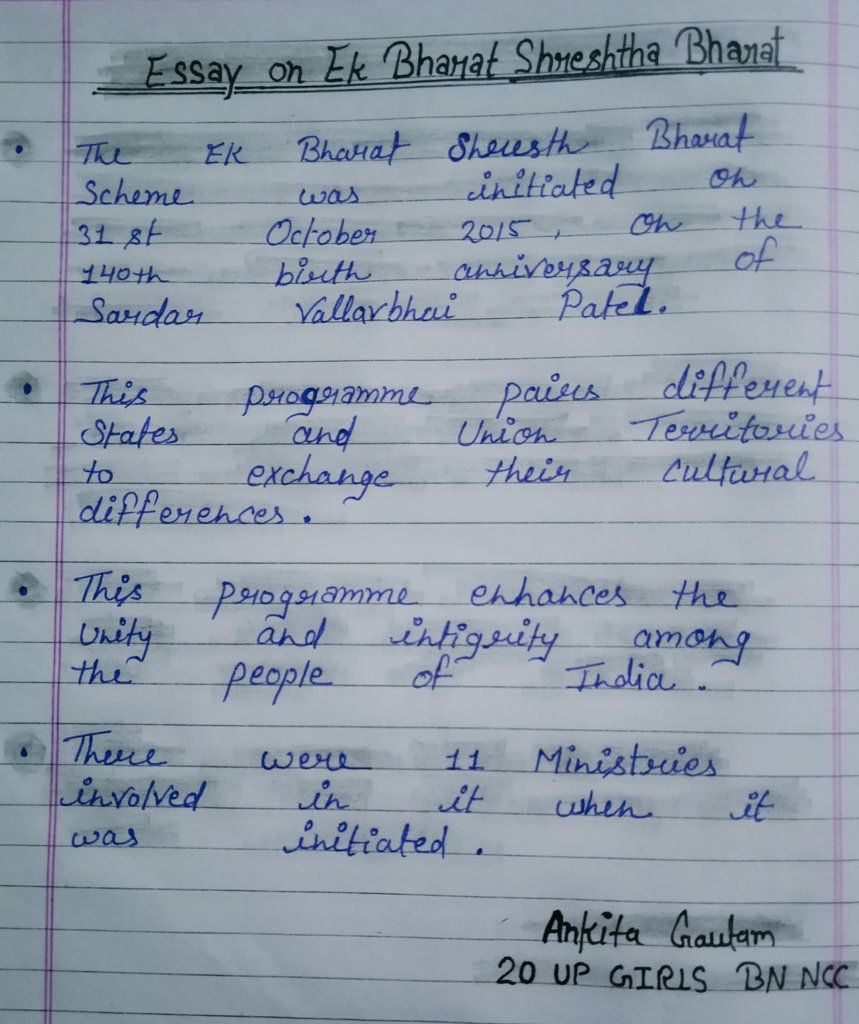 Essay on Ek Bharat Shreshtha Bharat
• The EK Bharat Shresth Bharat
Scheme was initiated on
31 st October 2015, on the
140th birth anniversary of
Sardar Vallavbhai Patel.
• This programme pairs different
States and Union Territories
to exchange their cultural
differences.
• This programme enhances the
Unity and intigrity among
the people of India.
• There were 11 Ministries
involved in it when it
was initiated.
Ankita Gautam
20 UP GIRLS BN NCC